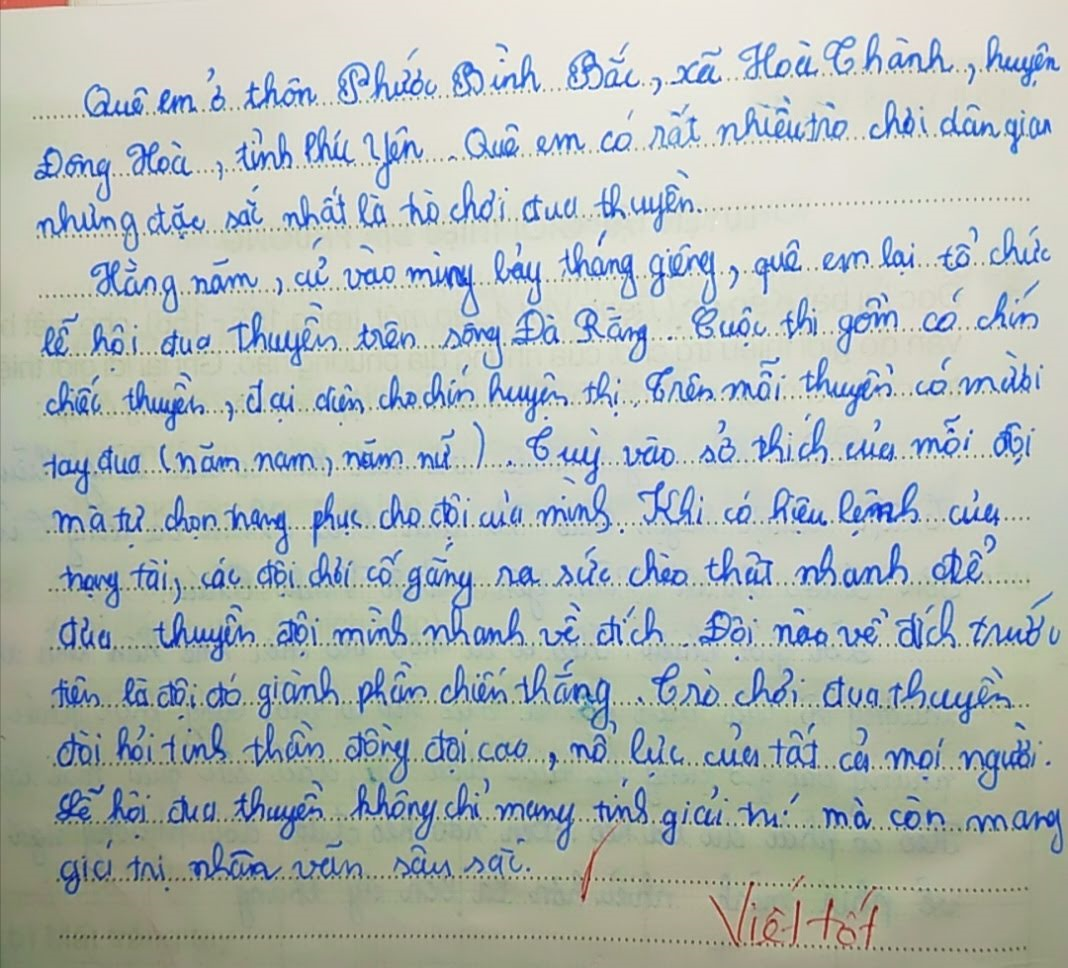 Quê em ở thôn Phước Bình Bắc, xã Hoà Thành, huyện
Đông Hoà, tỉnh Phú Yên. Quê em có rất nhiều trò chơi dân gian
nhưng đặc sắc nhất là trò chơi đua thuyền.
Hằng năm, cứ vào mùng bảy tháng giêng, quê em lại tổ chức
lễ hội đua thuyền trên sông Đà Rằng. Cuộc thi gồm có chín
chiếc thuyền, đại diện cho chín huyện thị. Trên mỗi thuyền có mười
tay đua (năm nam, năm nữ). Tuỳ vào sở thích của mỗi đội
mà tự chọn trang phục cho đội của mình. Khi có hiệu lệnh của
trọng tài, các đội chơi cố gắng ra sức chèo thật nhanh để
đưa thuyền đội mình nhanh về đích. Đội nào về đích trước
tiên là đội đó giành phần chiến thắng. Trò chơi đua thuyền
đòi hỏi tinh thần đồng đội cao, nỗ lực của tất cả mọi người.
Lễ hội đua thuyền không chỉ mang tính giải trí mà còn mang
giá trị nhân văn sâu sắc.
Viết tốt